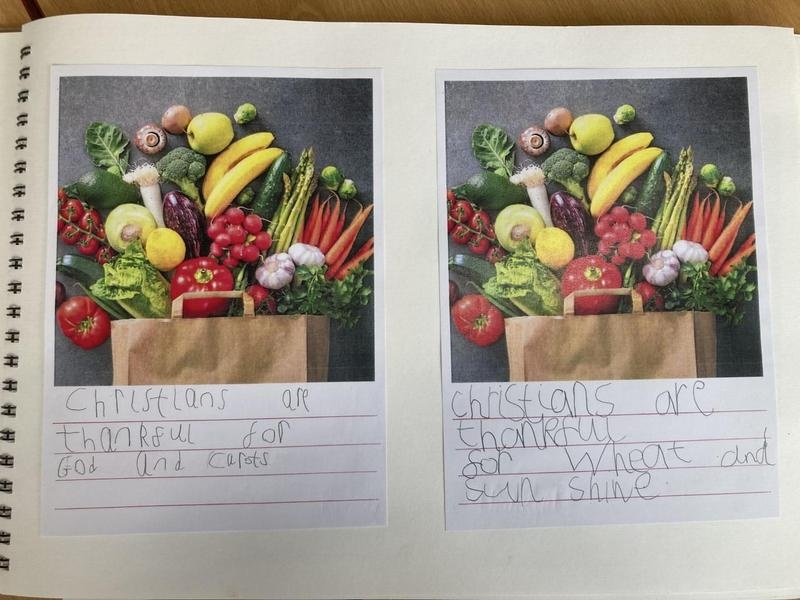 Christians are
thankful for
God and Carots
christians are
thankful
for wheat and
sun shine.